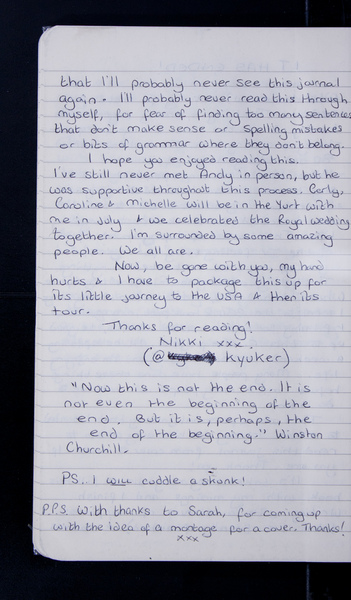 that I'll probably never see this journal
again. I'll probably never read this through
myself, for fear of finding too many sentences
that don't make sense or spelling mistakes
or bits of grammar where they don't belong.
I hope you enjoyed reading this.
I've still never met Andy in person, but he
was supportive throughout this process. Carly,
Caroline & Michelle will be in the Yurt with
me in July & we celebrated the Royal Wedding
together. I'm surrounded by some amazing
people. We all are.
Now, be gone with you, my hand
hurts & I have to package this up for
its little journey to the USA & then its
tour.
Thanks for reading!
Nikki xxx.
(@ Kyuker)
"Now this is not the end. It is
not even the beginning of the
end. But it is, perhaps, the
end of the beginning." Winston
Churchill.
PS. I WILL cuddle a skunk!
P.P.S. With thanks to Sarah, for coming up
with the idea of a montage for a cover. Thanks!
xxx